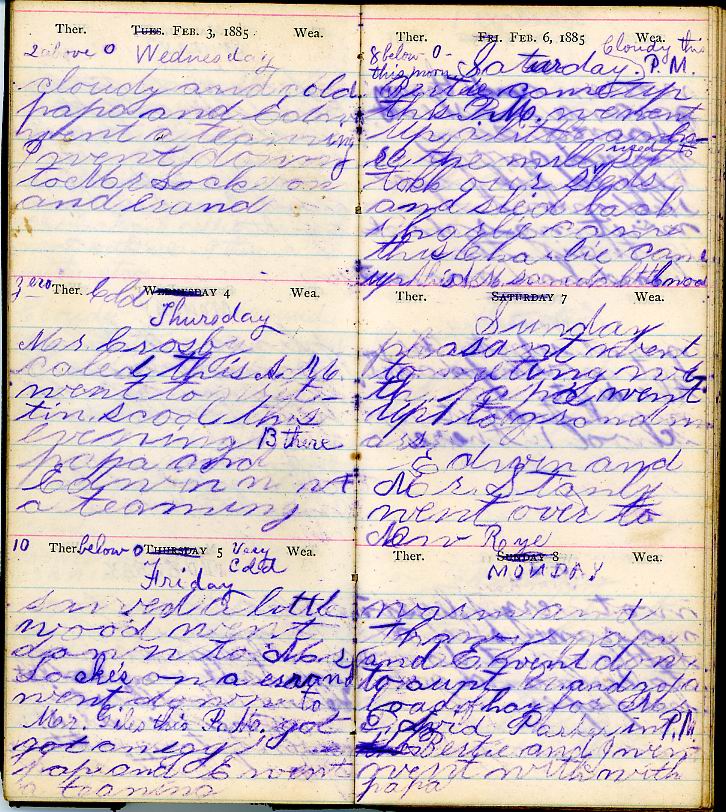 Ther. Tues. Feb. 3, 1885 Wea.
2 above 0 Wednesday
cloudy and cold
papa and Edwin
went a teaming
I went down
to Mr Lock on
and erand
zero Ther. Cold Wednesday 4 Wea.
Thursday
Mr. Crosby
caled this A.M.
went to
tin scool this
evening 13 there
papa and
Edwin went
a teaming
10 Ther. below 0 Thursday 5 Very Cold Wea.
Friday
sawed a little
wood went
down to Mr.
Lockes on a errand
went down to
Mr. Giles this P.M. got
got an egg
papa and E went
a teaming
Ther. Fri. Feb. 6, 1885 Wea.
8 below 0 - this morn Saturday. Cloudy this P.M.
Bertie came up
this P.M. went
up
se the mill used to
took our sleds
and slid back
Charlie came
this Charlie came
up
Ther. Saturday 7 Wea.
Sunday
pleasant went
to meeting
the papa went
up to grandm
as
Edwin and
Mr. Stanly
went over to
New Raye
Ther. Sunday 8 Wea.
MONDAY
warm and
thawy papa
and E went down
to aunt and
load of hay for Mr.
David Parker in P.M.
Bertie and I went
went with with
papa